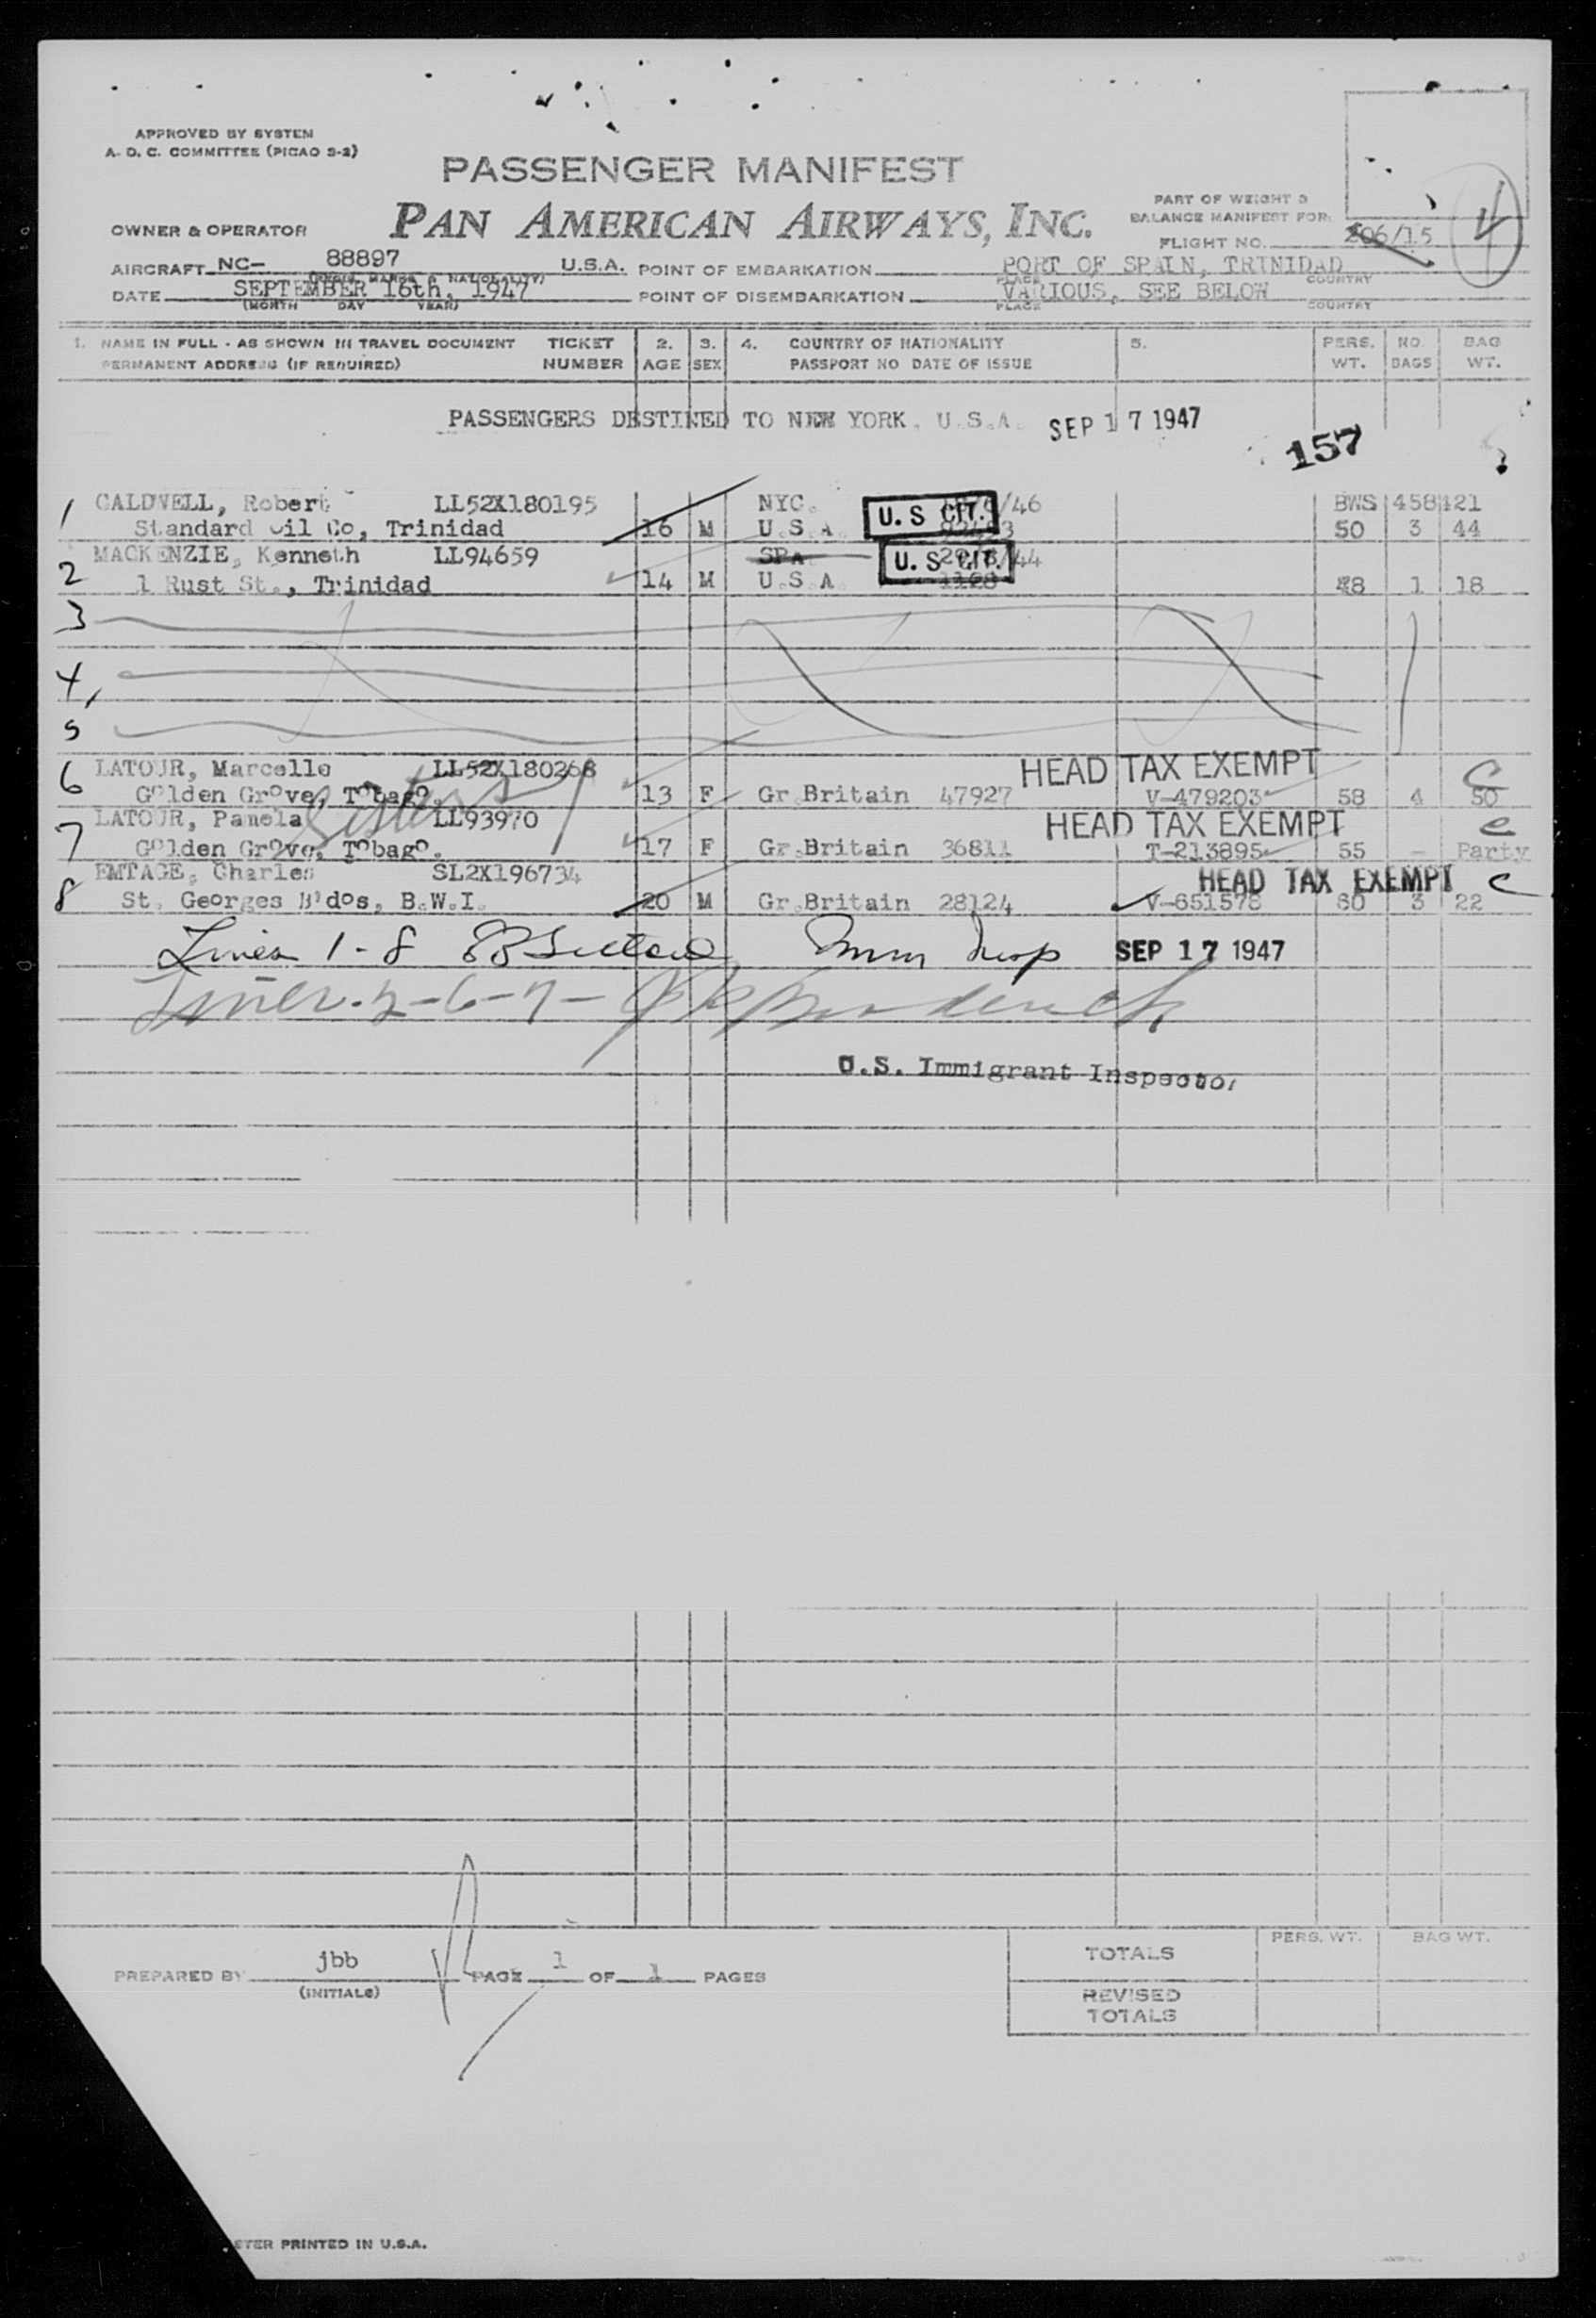 APPROVED BY SYSTEM
A. D. C. COMMITTEE (PICAO S-2)
PASSENGER MANIFEST
PART OF WEIGHT &
BALANCE MANIFEST FOR:
OWNER & OPERATOR PAN AMERICAN AIRWAYS, INC.
FLIGHT NO. 206/15 4
AIRCRAFT NC- 88897 U.S.A. POINT OF EMBARKATION PORT OF SPAIN, TRINIDAD
PLACE COUNTRY
DATE SEPTEMBER 16th, 1947 POINT OF DISEMBARKATION VARIOUS, SEE BELOW
(MONTH DAY YEAR) PLACE COUNTRY
1. NAME IN FULL - AS SHOWN IN TRAVEL DOCUMENT TICKET 2. 3. 4. COUNTRY OF NATIONALITY 5. PERS. NO. BAG
PERMANENT ADDRESS (IF REQUIRED) NUMBER AGE SEX PASSPORT NO DATE OF ISSUE WT. BAGS WT.
PASSENGERS DESTINED TO NEW YORK, U.S.A. SEP 17 1947
157
1 CALDWELL, Robert LL52X180195 NYC. /46 BWS 458421
Standard Oil Co, Trinidad 16 M U.S.A. U. S CIT. 50 3 44
2 MACKENZIE, Kenneth LL94659 SPA /44
1 Rust St., Trinidad 14 M U.S.A. U. S CIT. 48 1 18
3
4,
5
6 LATOUR, Marcelle LL52X180268 HEAD TAX EXEMPT C
Golden Grove, Tobago. 13 F Gr.Britain 47927 V-479203 58 4 50
Sisters
7 LATOUR, Pamela LL93970 HEAD TAX EXEMPT C
Golden Grove, Tobago. 17 F Gr.Britain 36811 T-213895 55 - Party
8 EMTAGE, Charles SL2X196734 HEAD TAX EXEMPT C
St. Georges B'dos, B.W.I. 20 M Gr.Britain 28124 V-651578 80 3 22
Lines 1-8 Imm Insp SEP 17 1947
U.S. Immigrant Inspector
PREPARED BY jbb PAGE 1 OF 1 PAGES
(INITIALS)
PERS. WT. BAG WT.
TOTALS
REVISED
TOTALS
PRINTED IN U.S.A.